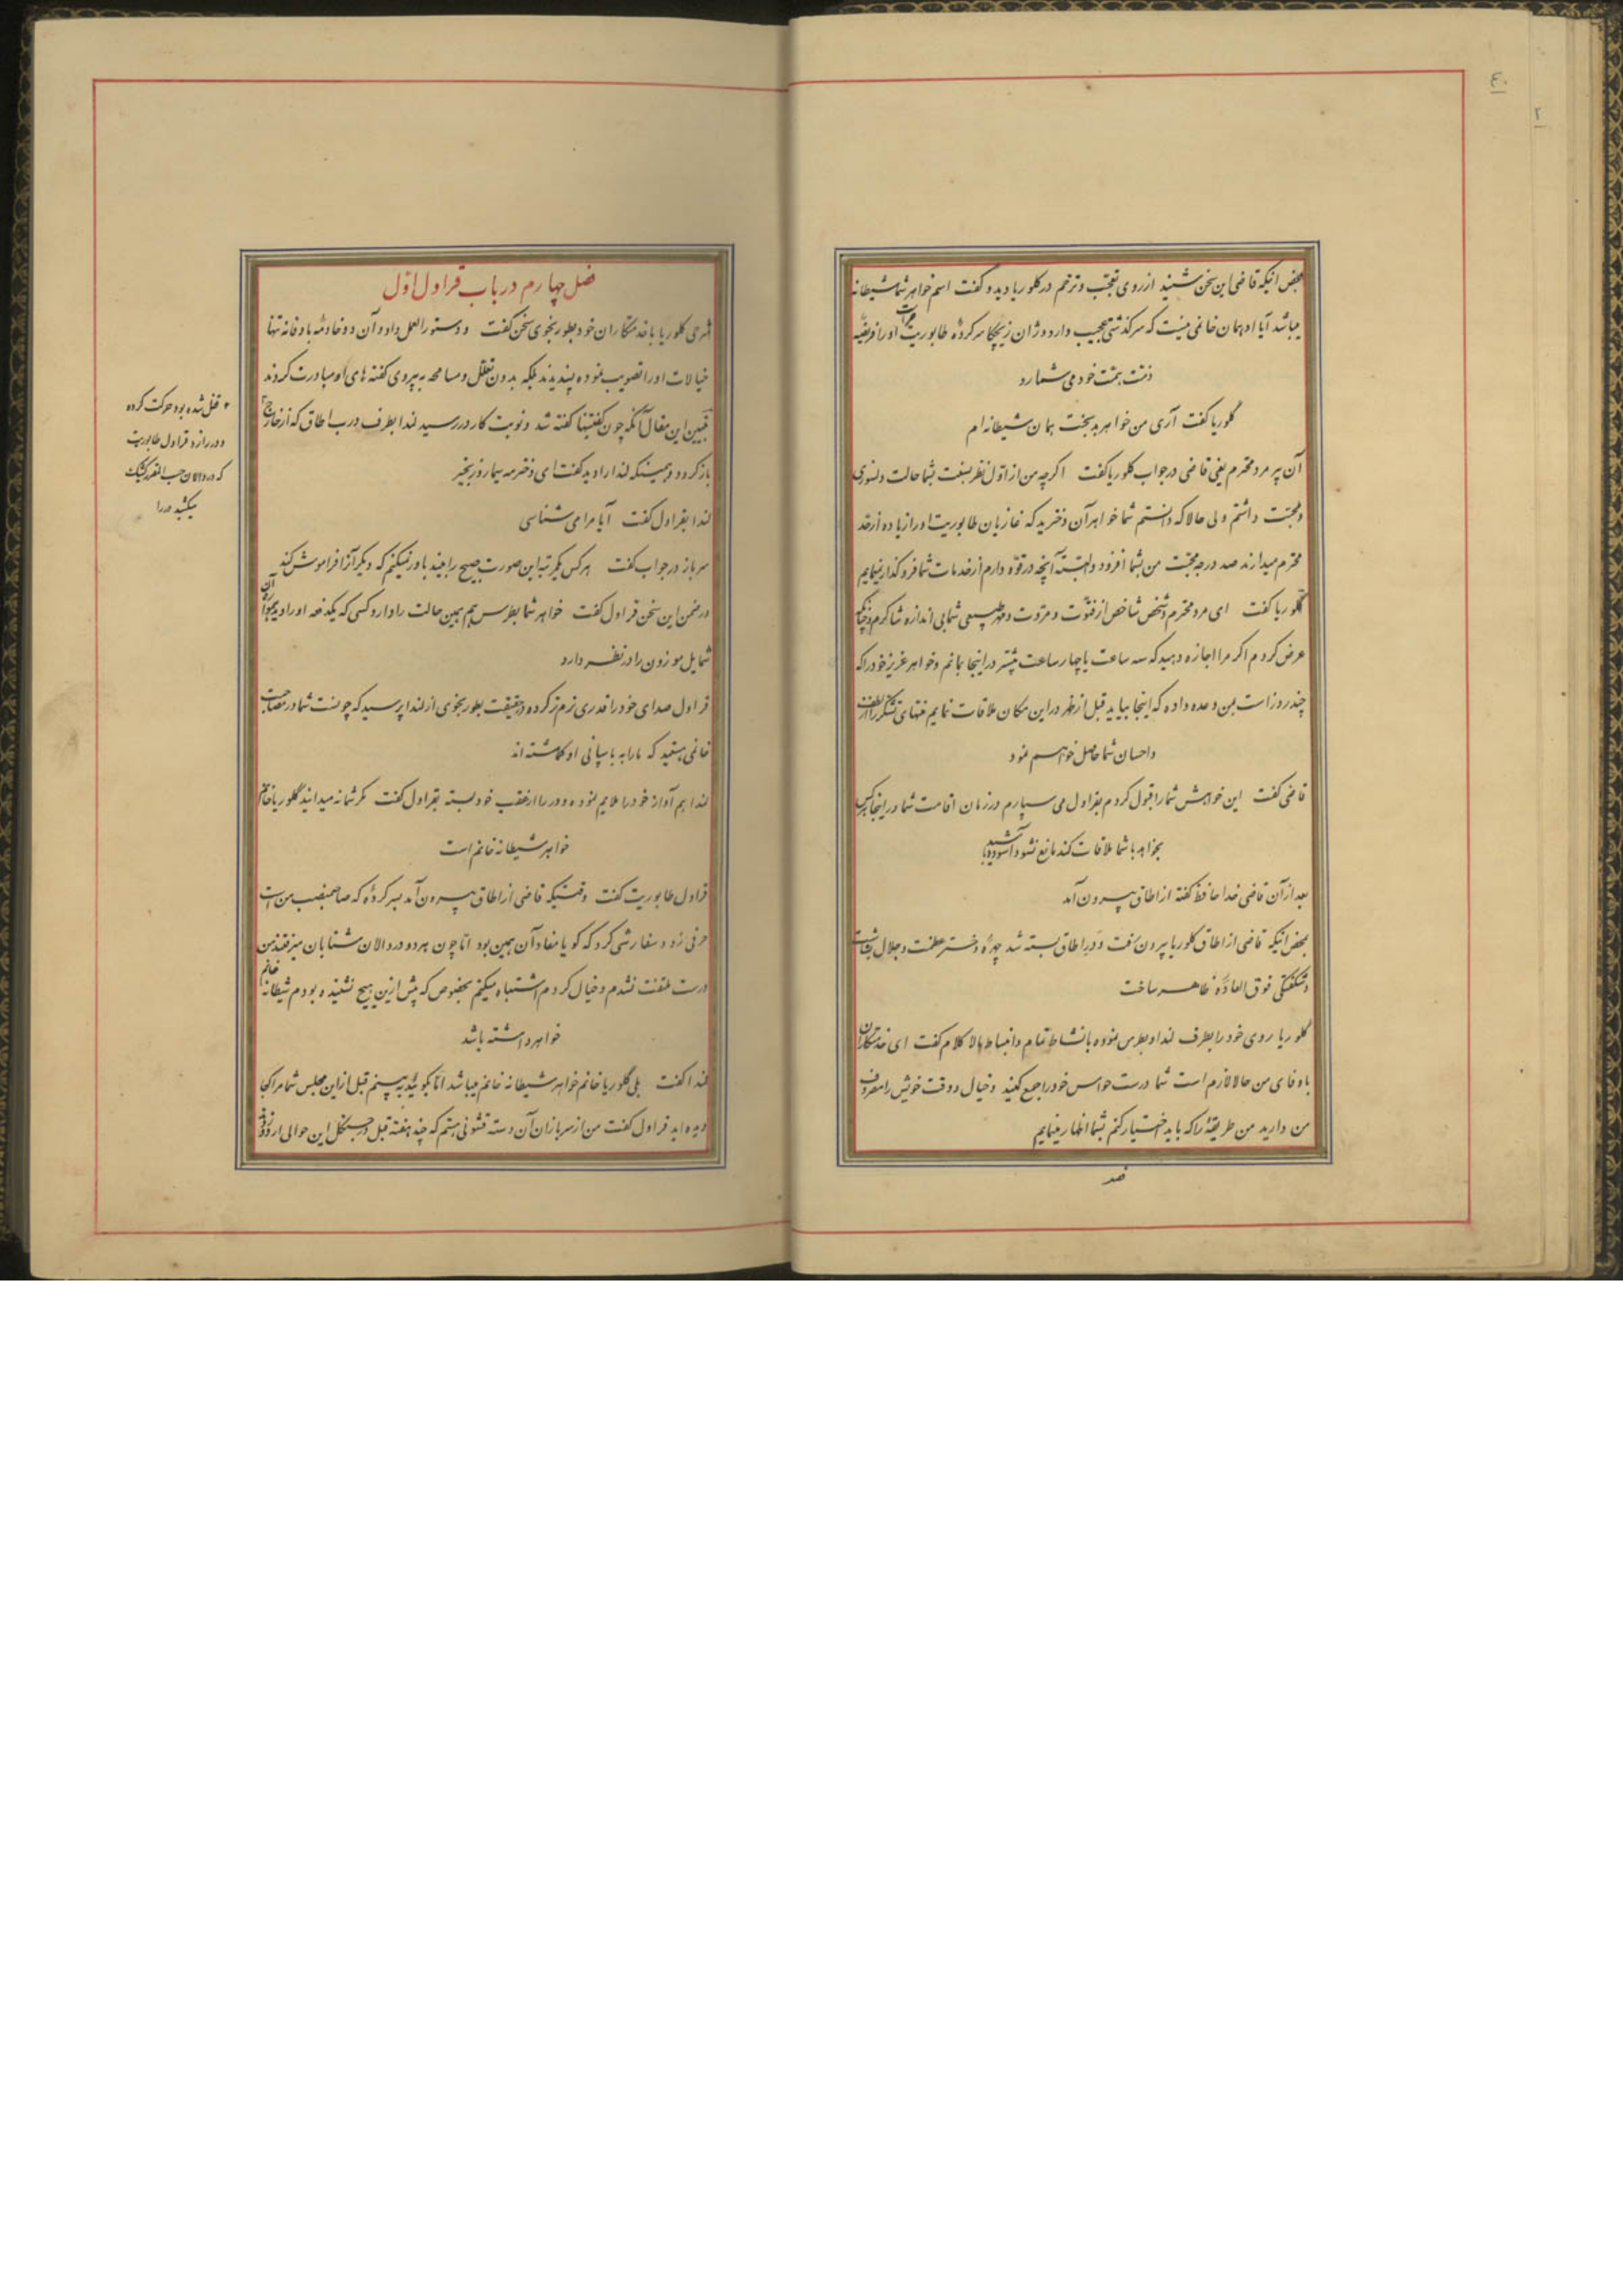 ٤٠
٢
بمحض اینکه قاضی این سخن شنید از روی تعجب و ترحم در کلوریا دید و گفت اسم خواهر شما شیطانه
میباشد آیا او همان خانمی نیست که سرگذشتی عجیب دارد و ژان زیچکا سرکردهٔ طابوریت او را فریضهٔ
ذمت همت خود می شمارد
کلوریا گفت آری من خواهر بدبخت همان شیطانه ام
آن پیر مرد محترم یعنی قاضی در جواب کلوریا گفت اگرچه من از اول نظر نسبت بشما حالت دلسوزی
و محبت داشتم ولی حالا که دانستم شما خواهر آن دخترید که غازیان طابوریت او را زیاده از حد
محترم میدارند صد درجه محبت من بشما افزود و البته آنچه در قوه دارم از خدمات شما فروگذار نمینمایم
کلوریا گفت ای مرد محترم و شخص شاخص از فتوت و مروت و مهر طبیعی شما بی اندازه شاکرم و چنانکه
عرض کردم اگر مرا اجازه دهید که سه ساعت یا چهار ساعت بیشتر در اینجا بمانم و خواهر عزیز خود را که
چند روز است بمن وعده داده که اینجا بیاید قبل از ظهر در این مکان ملاقات نمایم منتهای تشکر را از لطف
و احسان شما حاصل خواهم نمود
قاضی گفت این خواهش شما را قبول کردم بقراول می سپارم در زمان اقامت شما در اینجا هر کس
بخواهد با شما ملاقات کند مانع نشود آسوده باشید
بعد از آن قاضی خدا حافظ گفته از اطاق بیرون آمد
بمحض اینکه قاضی از اطاق کلوریا بیرون رفت و در اطاق بسته شد چهرهٔ دختر عظمت و جلال بشاشت
و شگفتگی فوق العاده ظاهر ساخت
کلوریا روی خود را بطرف لندا و بطرس نموده با نشاط تمام و انبساط بالا کلام گفت ای خدمتکاران
با وفای من حالا لازم است شما درست حواس خود را جمع کنید و خیال و وقت خویش را مصروف
من دارید من طریقهٔ را که باید اختیار کنم بشما اظهار مینمایم
فصل
فصل چهارم در باب قراول اوّل
شرحی کلوریا با خدمتکاران خود بطور نجوی سخن گفت و دستور العمل داد و آن دو خادمهٔ با وفا نه تنها
خیالات او را تصویب نموده پسندیدند بلکه بدون تعلل و مسامحه به پیروی گفته های او مبادرت کردند
تبیین این مقال آنکه چون گفتنیها گفته شد و نوبت کار در رسید لندا بطرف درب اطاق که از خارج ٢
باز کرد و همینکه لندا را دید گفت ای دختر مه سیما روز بخیر
لندا بقراول گفت آیا مرا می شناسی
سرباز در جواب گفت هر کس یکمرتبه این صورت صبیح را بیند باور نمیکنم که دیگر آنرا فراموش کند
در ضمن این سخن قراول گفت خواهر شما بطرس هم همین حالت را دارد کسی که یکدفعه او را دید همواره آن
شمایل موزون را در نظر دارد
قراول صدای خود را قدری نرم تر کرده در حقیقت بطور نجوی از لندا پرسید که چونست شما در مصاحبت
خانمی هستید که ما را به پاسبانی او گماشته اند
لندا هم آواز خود را ملایم نموده و در را از عقب خود بسته بقراول گفت مگر شما نمیدانید کلوریا خانم
خواهر شیطانه خانم است
قراول طابوریت گفت وقتیکه قاضی از اطاق بیرون آمد بسرکردهٔ که صاحبمنصب من است
حرفی زد و سفارشی کرد که گویا مفاد آن همین بود اما چون هر دو در دالان شتابان میرفتند من
درست ملتفت نشدم و خیال کردم اشتباه میکنم بخصوص که پیش ازین هیچ نشنیده بودم شیطانه خانم
خواهر داشته باشد
لندا گفت بلی کلوریا خانم خواهر شیطانه خانم میباشد اما بگوئید ببینم قبل ازین مجلس شما مرا کجا
دیده اید قراول گفت من از سربازان آن دسته قشونی هستم که چند هفته قبل در جنگل این حوالی اردو
٢ قفل شده بود حرکت کرده
و در را زد قراول طابوریت
که در دالان حسب المقرر کشیک
میکشید در را